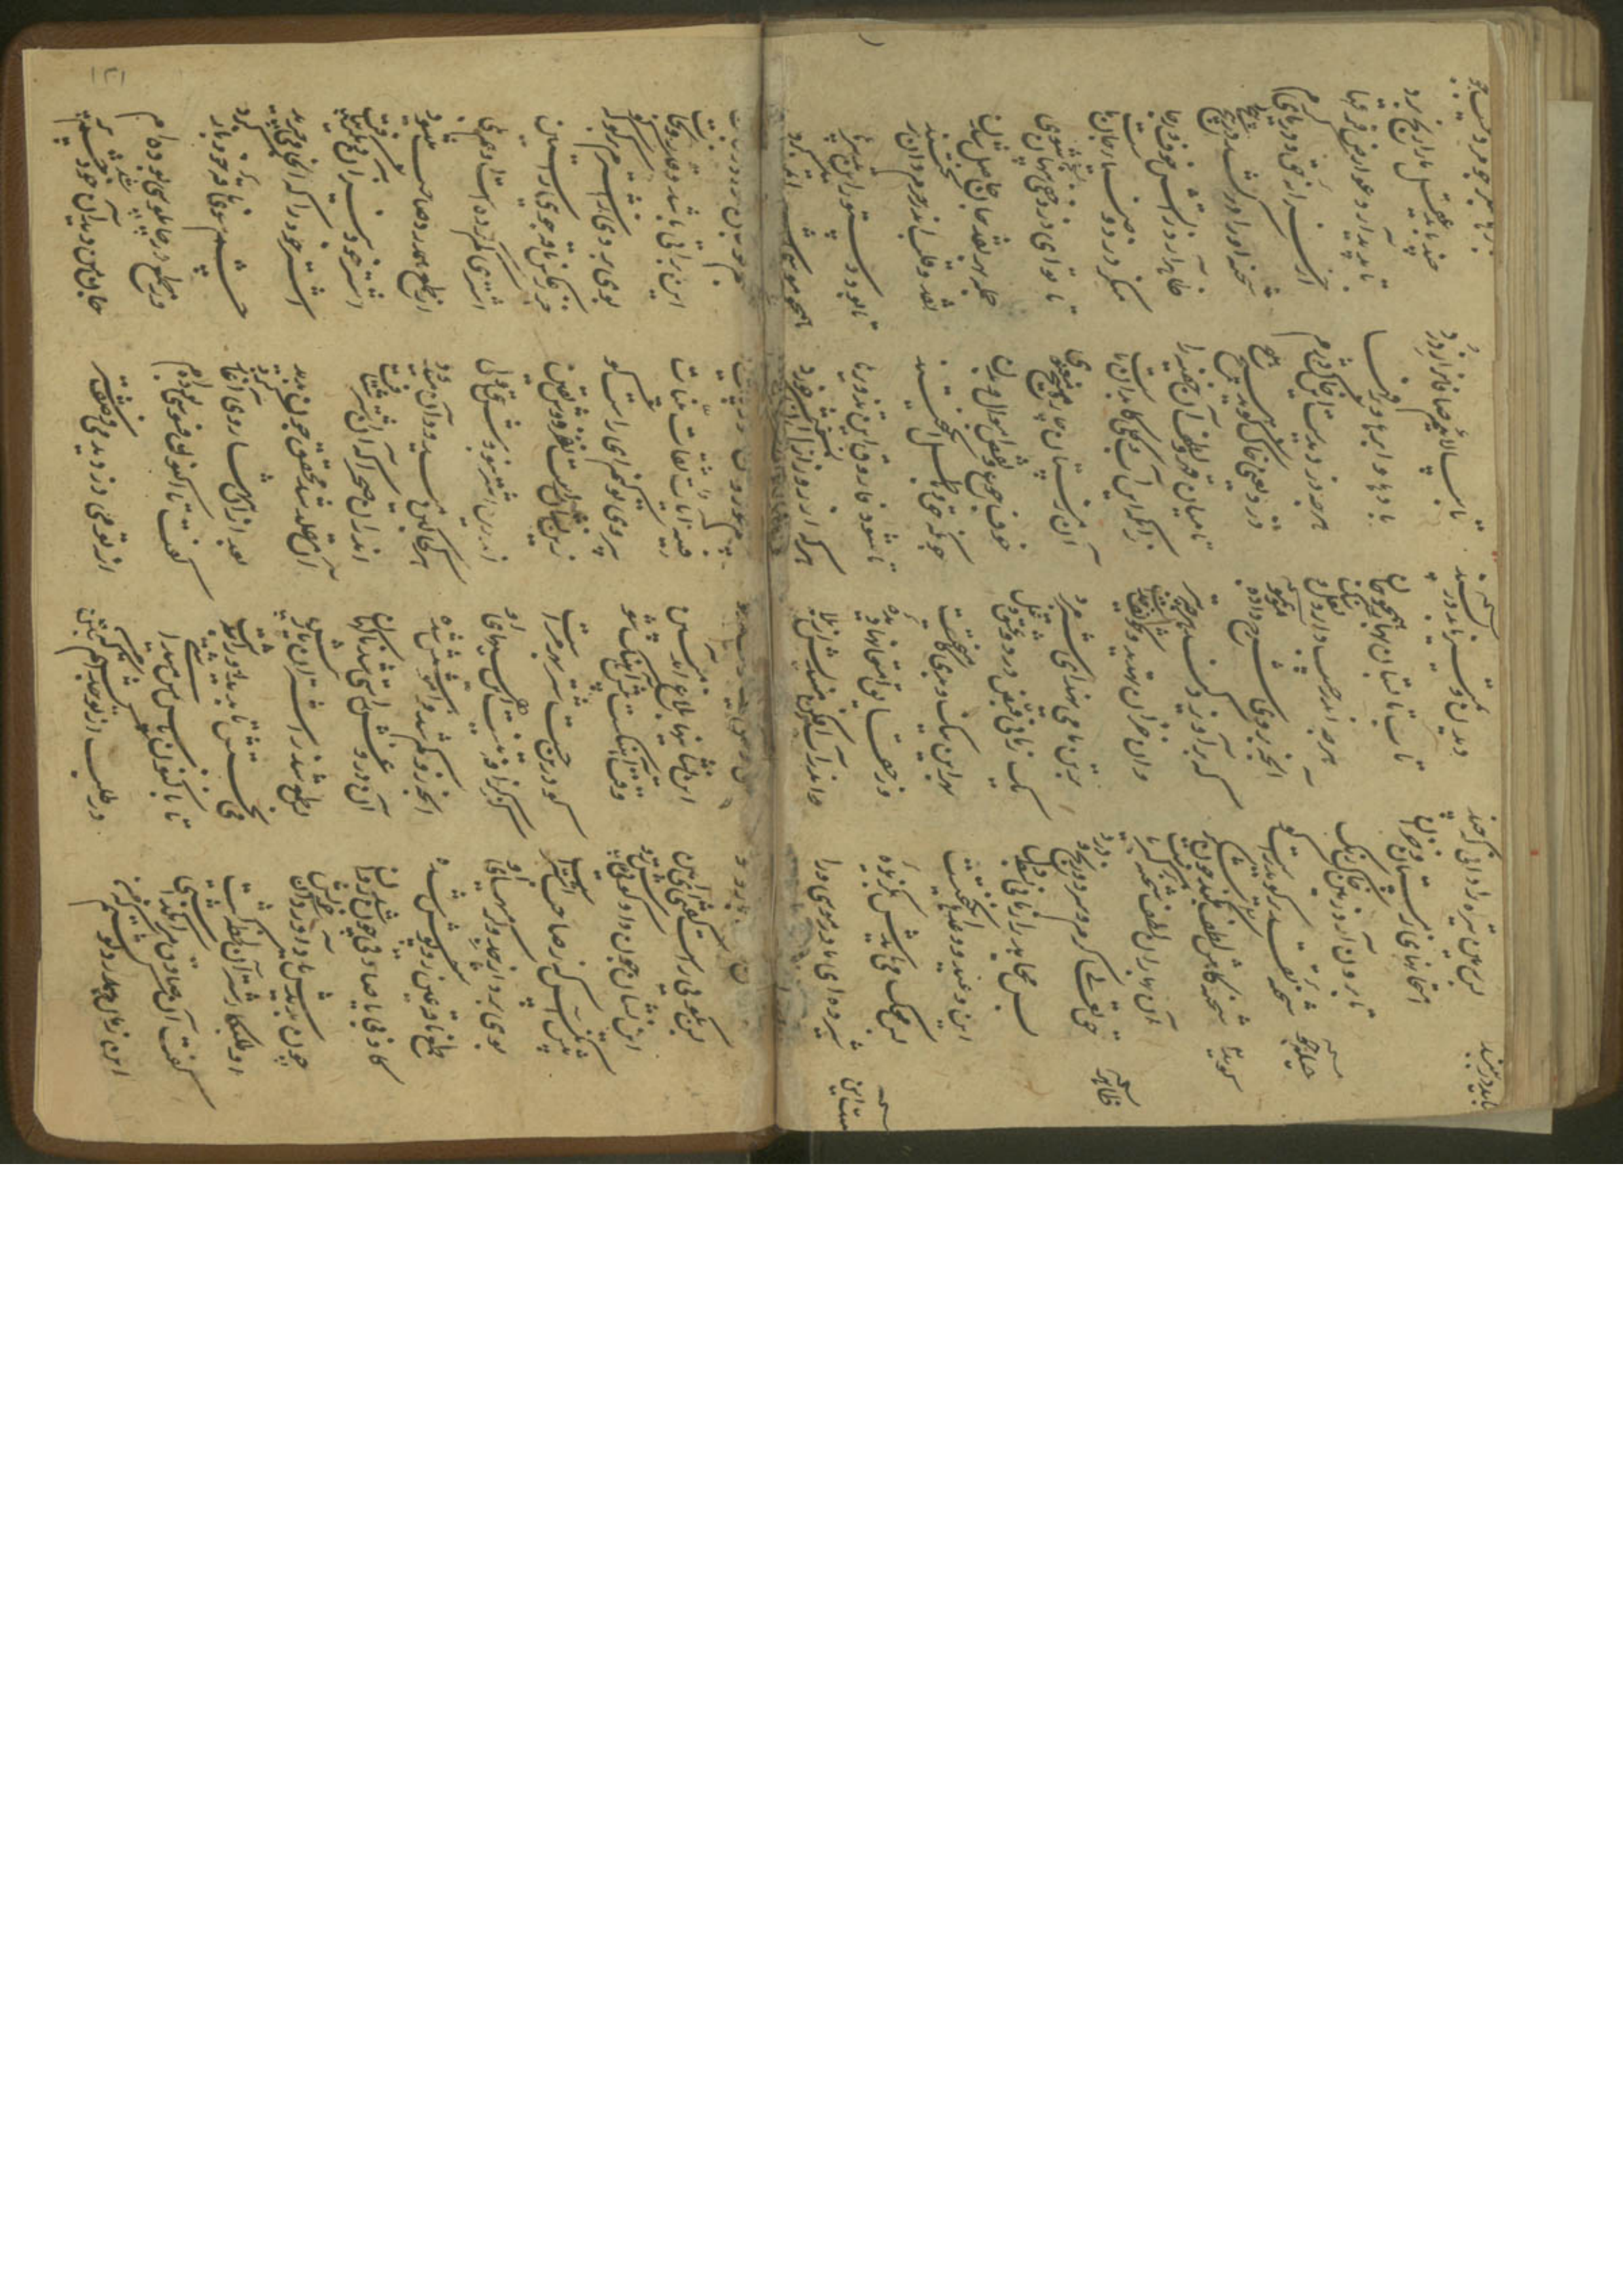 پس زمین تیره را دانی که چند دیدن و تمییز باید در پسند
تا بپالاییم صافان را ز درد چند باید عقل ما را رنج برد
امتحانهای زمستان و خزان تاب تابستان بهار همچو جان
بادها و ابرها و برقها تا پدید آرد عوارض فرقها
تا برون آرد زمین خاک رنگ هرچه اندر جیب دارد لعل و سنگ
هرچه دزدیدست این خاک دژم از خزانه حق و دریای کرم
شحنه تقدیر گوید راست گو آنچه بردی شرح وا ده مو بمو
دزد یعنی خاک گوید هیچ هیچ شحنه او را در کشد در پیچ پیچ
شحنه گاهش لطف گوید چون شکر گه برآویزد کند هرچه بتر
تا میان قهر و لطف آن خفیه‌ها ظاهر آید ز آتش خوف و رجا
آن بهاران لطف شحنه کبریاست وان خزان تهدید و تخویف خداست
زانکه این آب و گلی کابدان ماست منکر و دزد ضیای جانهاست
حق تعالی گرم و سرد و رنج و درد بر تن ما می‌نهد ای شیر مرد
آن زمستان چارمیخ معنوی تا تو ای دزد خفی
پس مجاهد را زمانی بسط دل یک زمانی قبض و درد و غش و غل
خوف و جوع و نقص اموال و بدن جمله بهر نقد جان
این وعید و وعدها انگیختست بهر این نیک و بدی کامیختست
چونکه حق و باطلی آمیختند نقد و قلب اندر حرمدان ریختند
پس محک می‌بایدش بگزیده در حقایق امتحانها دیده
تا شود فاروق این تزویرها تا بود دستور این تدبیرها
شیر ده ای مادر موسی ورا واندر آب افکن میندیش از بلا
هر که در روز الست آن شیر خورد همچو موسی شیر را تمییز کرد
نسخه
ظاهر
نسخه
١٢١
پس بگویی راست گفتی ای امین این نشانیها بلاغ آمد مبین
فیه آیات ثقات بینات این براتی باشد و قدر نجات
این نشان چون داد گویی پیش رو وقت آهنگست پیش آهنگ شو
پی روی تو کنم ای راست گو بوی بردی ز اشترم بنما که کو
پیش آنکس که نه صاحب اشتریست کو درین جست شتر بهر مریست
زین نشان راست نفزودش یقین جز ز عکس ناقه جوی راستین
بوی برد از جد و گرمیهای او که گزافه نیست این هیهای او
اندرین اشتر نبودش حق ولی اشتری گم کرده است او هم بلی
طمع ناقه غیر روپوشش شده آنچه ازو گم شد فراموشش شده
هر کجا او می‌دود آن می‌دود از طمع همدرد صاحب می‌شود
کاذبی با صادقی چون شد روان آن دروغش راستی شد ناگهان
اندران صحرا که آن اشتر شتافت اشتر خود نیز آن دیگر بیافت
چون بدیدش یاد آورد آن خویش بی طمع شد ز اشتران یار و خویش
آن مقلد شد محقق چون بدید اشتر خود را که آنجا می‌چرید
او طلبکار شتر آن لحظه گشت می‌نجستش تا ندید او را بدشت
بعد ازان تنها روی آغاز کرد چشم سوی ناقه خود باز کرد
گفت آن صادق مرا بگذاشتی تا باکنون پاس من می‌داشتی
گفت تا اکنون فسوسی بوده‌ام وز طمع در چاپلوسی بوده‌ام
این زمان همدرد تو گشتم که من در طلب از تو جدا گشتم بتن
از تو می‌دزدیدمی وصف شتر جان من دید آن خود شد چشم پر